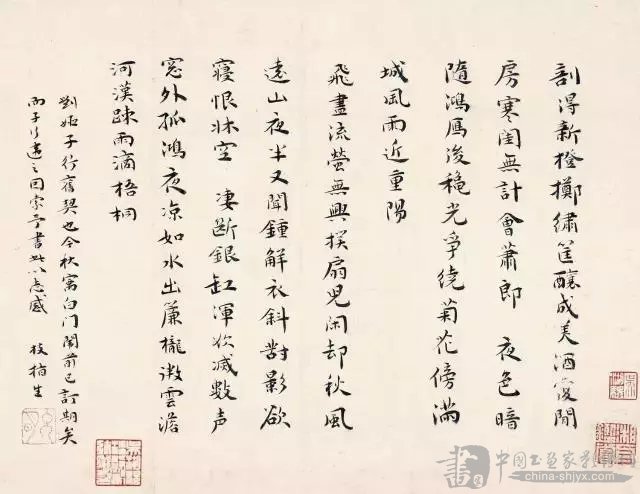 剖得新橙擲繡筐釀成美酒覆閒
房寒閨無計會蕭郎　夜色暗
隨鴻鴈後穐光爭繞菊花傍滿
城風雨近重陽
飛盡流螢無興撲扇兒閑却秋風
遠山夜半又聞鍾解衣斜對影欲
寢恨牀空　凄斷銀缸渾欲滅數声
窓外孤鴻夜凉如水出簾櫳微雲澹
河漢踈雨滴梧桐
劉姬子行舊契也今秋寓白門闈前已訂期矣
而子行遣之因索予書此以志感　枝栖生
china-shjyx.com